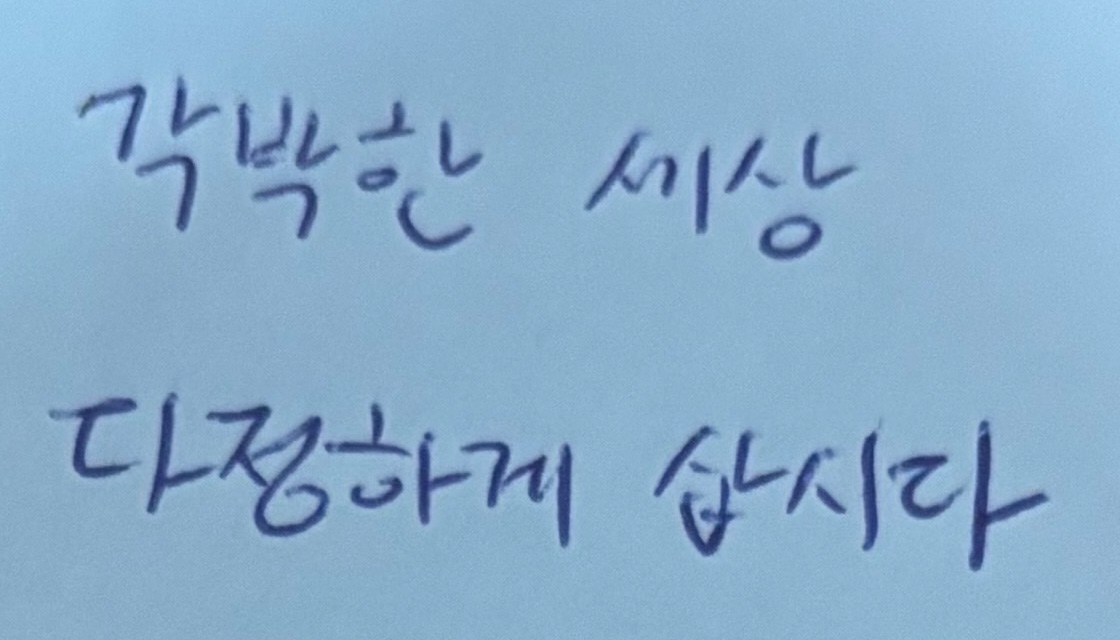 각박한 세상
다정하게 삽시다